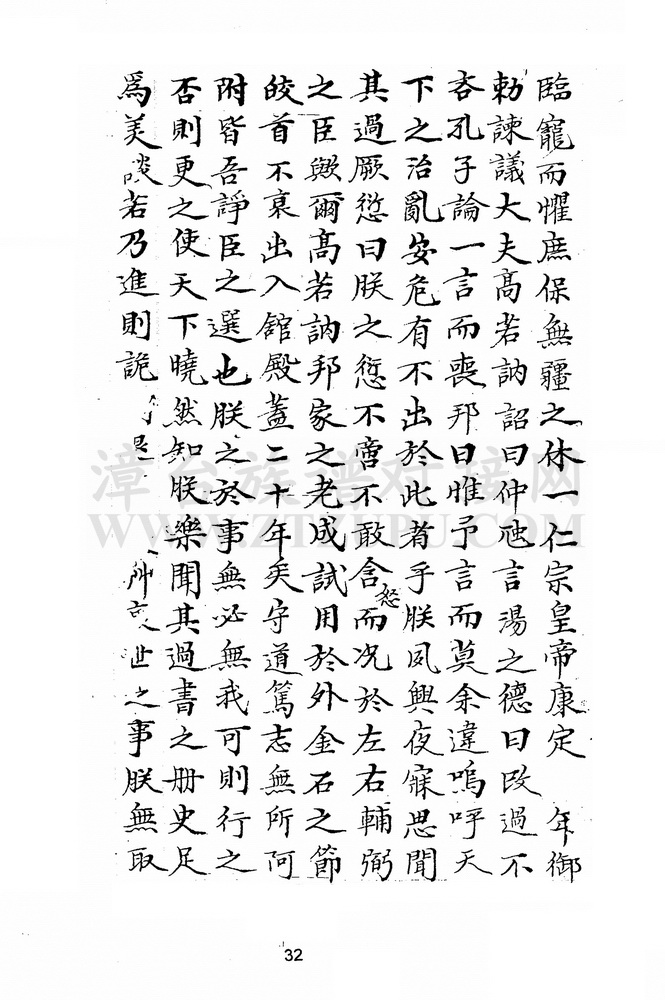 臨寵而懼庶保無疆之休一仁宗皇帝康定 年御
勅諫議大夫高若訥詔曰仲虺言湯之德曰改過不
吝孔子論一言而喪邦曰惟予言而莫余違嗚呼天
下之治亂安危有不出於此者乎朕夙興夜寐思聞
其過厥愆曰朕之愆不啻不敢含怒而況於左右輔弼
之臣歟爾高若訥邦家之老成試用於外金石之節
皎首不衰出入舘殿蓋二十年矣守道篤志無所阿
附皆吾諍臣之選也朕之於事無必無我可則行之
否則更之使天下曉然知朕樂聞其過書之冊史足
爲美談若乃進則詭 是 世之事朕無取
漳台族谱对接网
WWW.ZTZUPU.COM
32